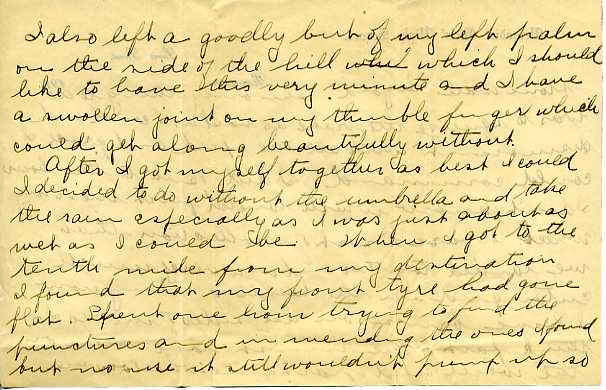 I also left a goodly bit of my left palm
on the side of the hill which I should
like to have this very minute and I have
a swollen joint on my thimble finger which
could get along beautifully without.
After I got myself together as best I could
I decided to do without the umbrella and take
the rain especially as I was just about as
wet as I could be. When I got to the
tenth mile from my destination
I found that my front tyre had gone
flat. Spent one hour trying to find the
punctures and in mending the ones I found
but no use it still wouldn't pump up so